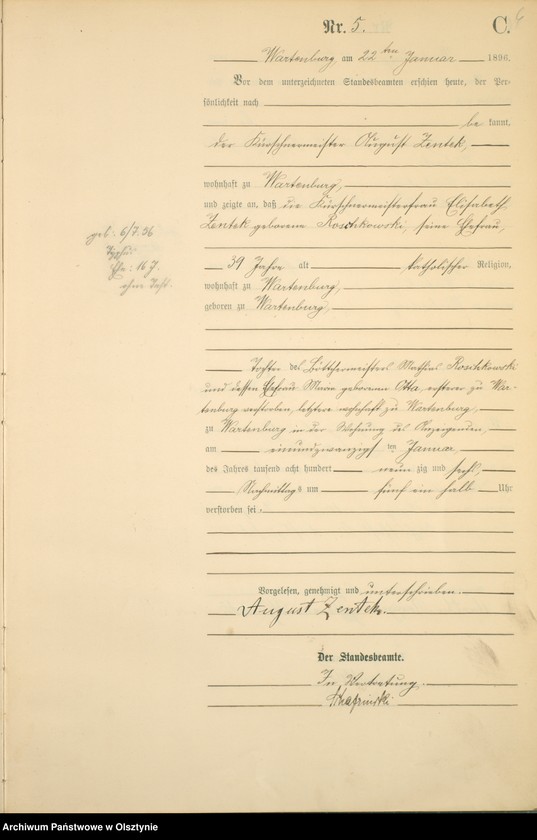 Nr. 5.
C.
Wartenburg am 22ten Januar 1896.
Vor dem unterzeichneten Standesbeamten erschien heute, der Per-
sönlichkeit nach
be kannt,
der Kürschnermeister August Zentek,
wohnhaft zu Wartenburg,
und zeigte an, daß die Kürschnermeisterfrau Elisabeth
Zentek geborene Roschkowski, seine Ehefrau,
39 Jahre alt katholischer Religion,
wohnhaft zu Wartenburg,
geboren zu Wartenburg,
Tochter des Böttchermeisters Mathias Roschkowski
und dessen Ehefrau Maria geborenen Otta, ersterer zu War-
tenburg verstorben, letztere wohnhaft zu Wartenburg,
zu Wartenburg in der Wohnung des Anzeigenden,
am einundzwanzigsten Januar
des Jahres tausend acht hundert neunzig und sechs
Nachmittags um fünf ein halb Uhr
verstorben sei.
Vorgelesen, genehmigt und unterschrieben.
August Zentek.
Der Standesbeamte.
In Vertretung.
geb: 6/7.56
Ehe: 16 J.
ohne Test.
Archiwum Państwowe w Olsztynie